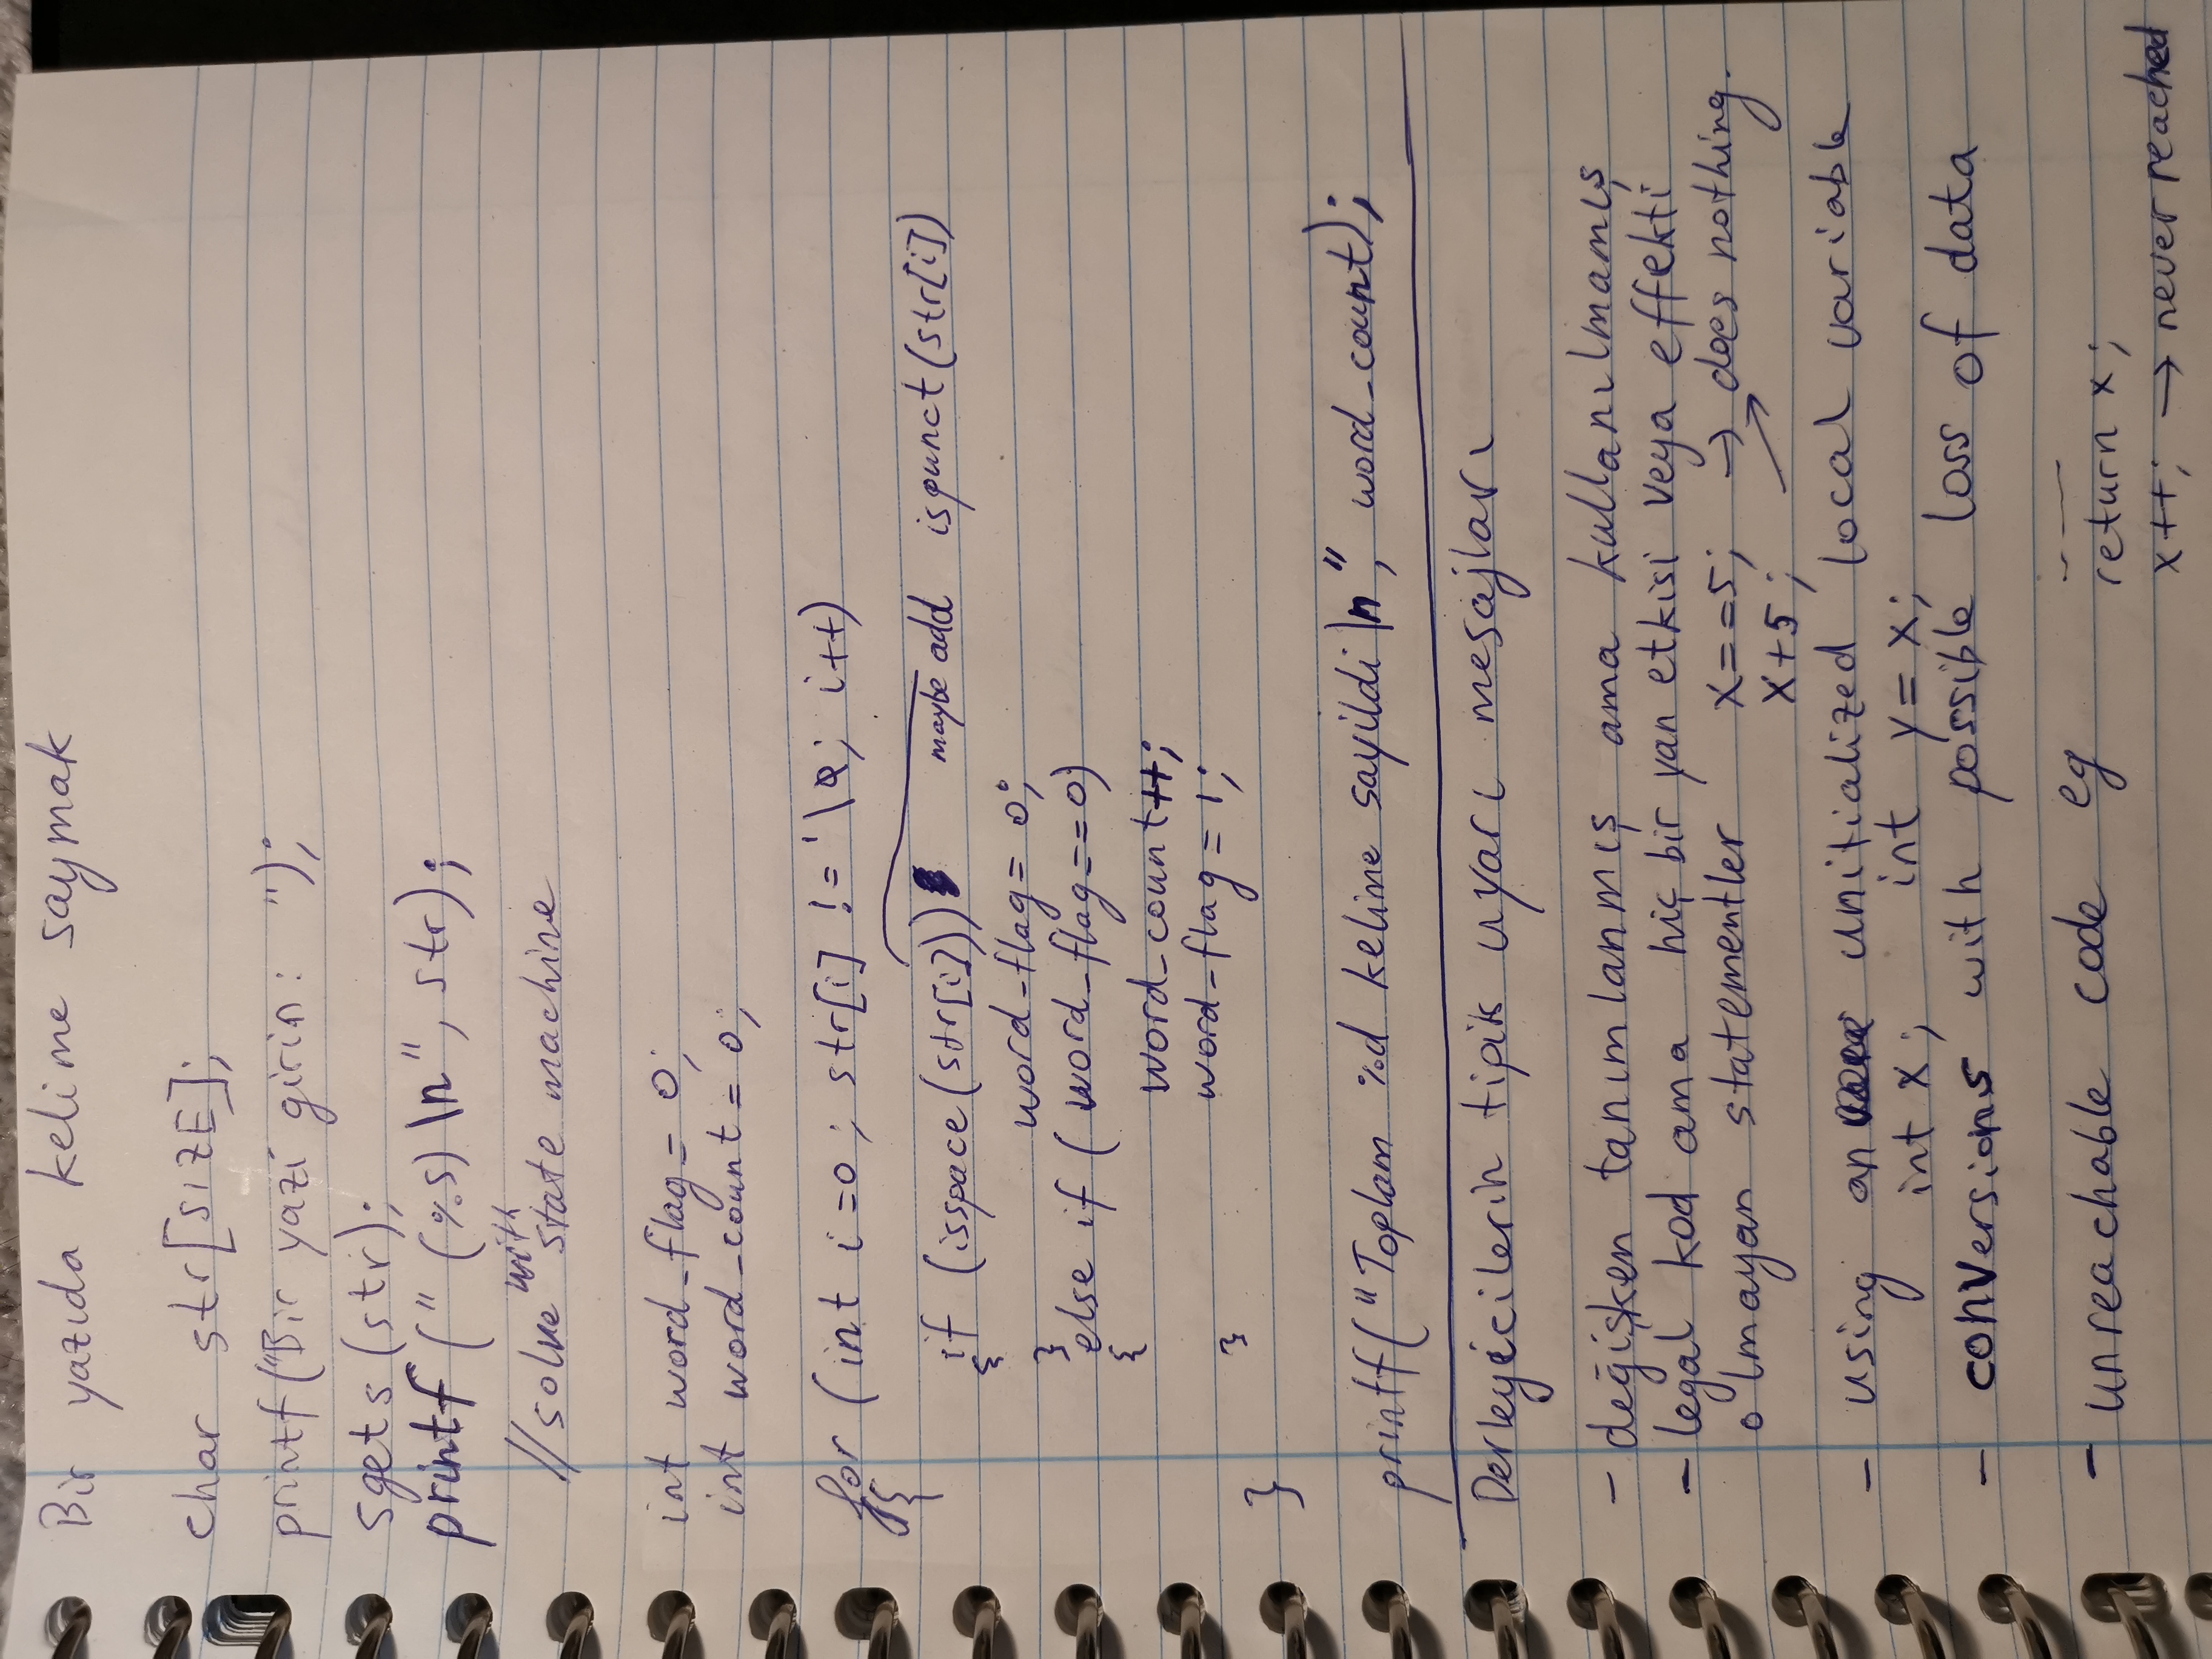 Bir yazıda kelime saymak
char str[SIZE];
printf("Bir yazi girin: ");
sgets(str);
printf(" (%s) \n", str);
//solve with state machine
int word_flag = 0;
int word_count = 0;
for (int i=0; str[i] != '\0; i++)
{
if (isspace(str[i])) maybe add ispunct(str[i])
{
word_flag = 0;
}
else if ( word_flag==0)
{
word_count++;
word_flag = 1;
}
}
printf("Toplam %d kelime sayildi \n", word_count);
Derleyicilerin tipik uyarı mesajları
- değişken tanımlanmış ama kullanılmamış
- legal kod ama hiç bir yan etkisi veya effekti
olmayan statementler x==5; → does nothing.
x+5;
- using an unitialized local variable
int x; int y = x;
- conversions with possible loss of data
- unreachable code eg
return x;
x++; → never reached